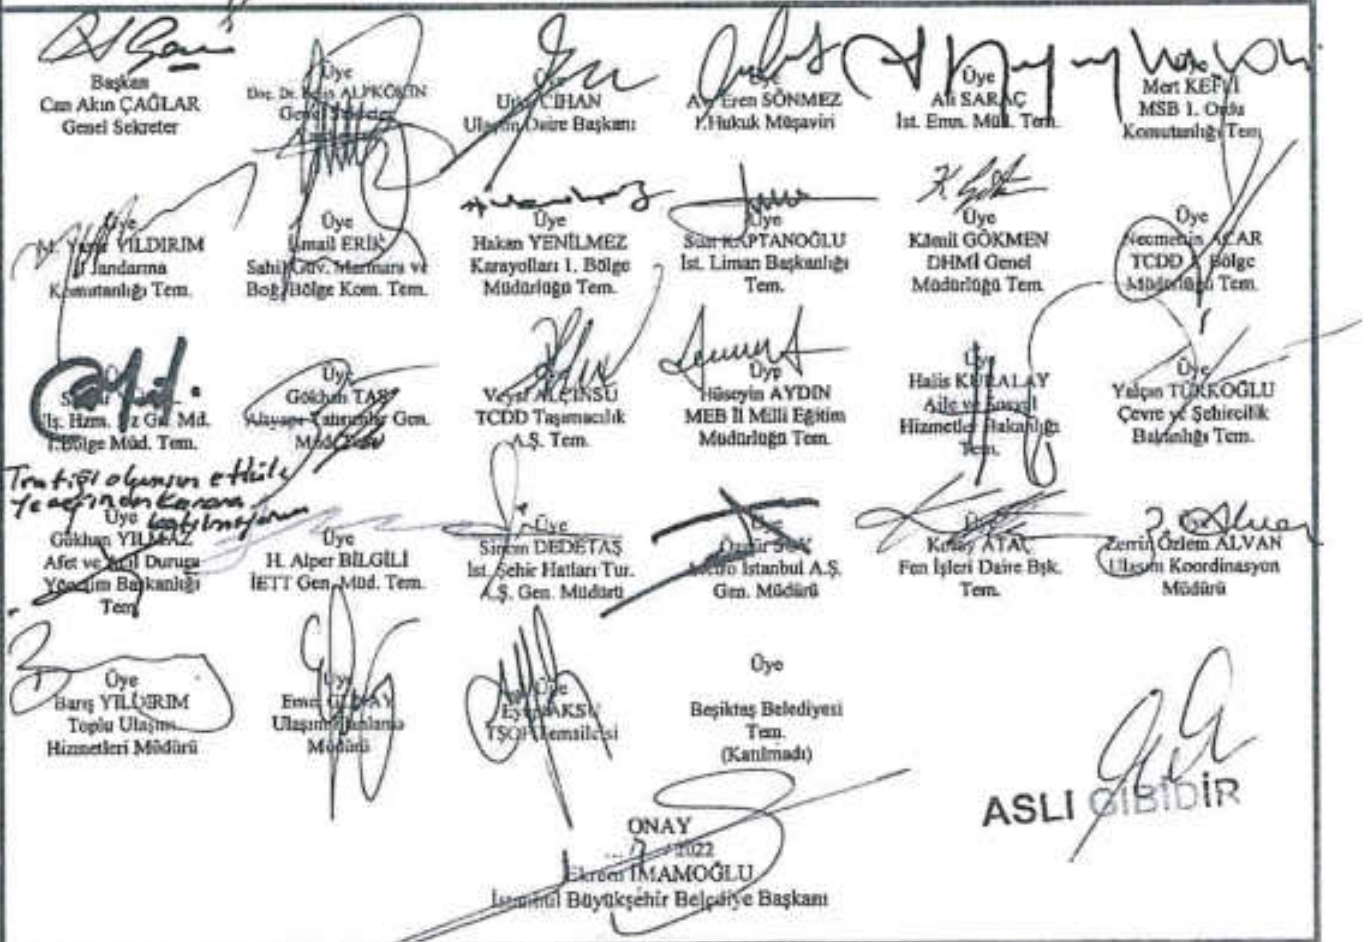 Başkan
Can Akın ÇAĞLAR
Genel Sekreter
Üye
Doç. Dr. ALPKÖKİN
Üye
CİHAN
Ulaşım Daire Başkanı
Eren SÖNMEZ
1.Hukuk Müşaviri
Üye
Ali SARAÇ
İst. Emn. Müd. Tem.
Mert
MSB 1. Ordu
Komutanlığı Tem.
Üye
M. YILDIRIM
İl Jandarma
Komutanlığı Tem.
Üye
İsmail ERİK
Sahil Güv. Marmara ve
Boğ. Bölge Kom. Tem.
Üye
Hakan YENİLMEZ
Karayolları 1. Bölge
Müdürlüğü Tem.
Üye
KAPTANOĞLU
İst. Liman Başkanlığı
Tem.
Üye
Kâmil GÖKMEN
DHMİ Genel
Müdürlüğü Tem.
Üye
Necmettin ACAR
TCDD Bölge
Müdürlüğü Tem.
Md.
1.Bölge Müd. Tem.
Üye
Gökhan TAŞ
Altyapı Yatırımlar Gen.
Müd. Tem.
Veysi ALÇINSU
TCDD Taşımacılık
A.Ş. Tem.
Üye
Hüseyin AYDIN
MEB İl Milli Eğitim
Müdürlüğü Tem.
Üye
Halis KURALAY
Aile ve Sosyal
Hizmetler Bakanlığı
Tem.
Üye
Yalçın TÜRKOĞLU
Çevre ve Şehircilik
Bakanlığı Tem.
Trafiği olumsuz etkile
karara
katılmıyorum
Üye
Gökhan YILMAZ
Afet ve Acil Durum
Yönetim Başkanlığı
Tem.
Üye
H. Alper BİLGİLİ
İETT Gen. Müd. Tem.
Üye
Sinem DEDETAŞ
İst. Şehir Hatları Tur.
A.Ş. Gen. Müdürü
Üye
Özgür SOY
Metro İstanbul A.Ş.
Gen. Müdürü
Üye
ATAÇ
Fen İşleri Daire Bşk.
Tem.
Zerrin Özlem ALVAN
Ulaşım Koordinasyon
Müdürü
Üye
Barış YILDIRIM
Toplu Ulaşım
Hizmetleri Müdürü
Üye
Ulaşım Planlama
Müdürü
Üye
AKSU
TŞOF Temsilcisi
Üye
Beşiktaş Belediyesi
Tem.
(Katılmadı)
ASLI GİBİDİR
ONAY
2022
Ekrem İMAMOĞLU
İstanbul Büyükşehir Belediye Başkanı